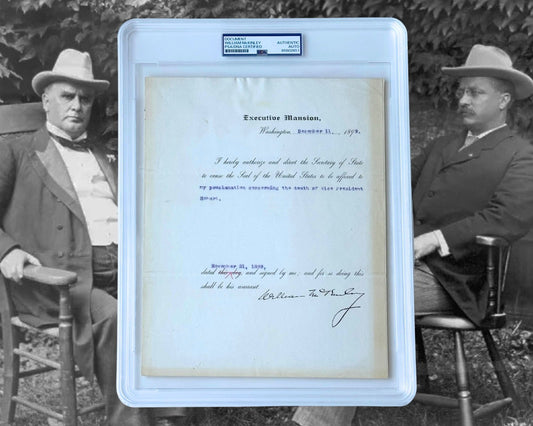 DOCUMENT
WILLIAM McKINLEY
PSA/DNA CERTIFIED
AUTHENTIC
AUTO
Executive Mansion,
Washington, December 11, 1899.
I hereby authorize and direct the Secretary of State
to cause the Seal of the United States to be affixed to
my proclamation concerning the death of Vice President
Hobart.
November 21, 1899,
dated this day and signed by me; and for so doing this
shall be his warrant.
William McKinley